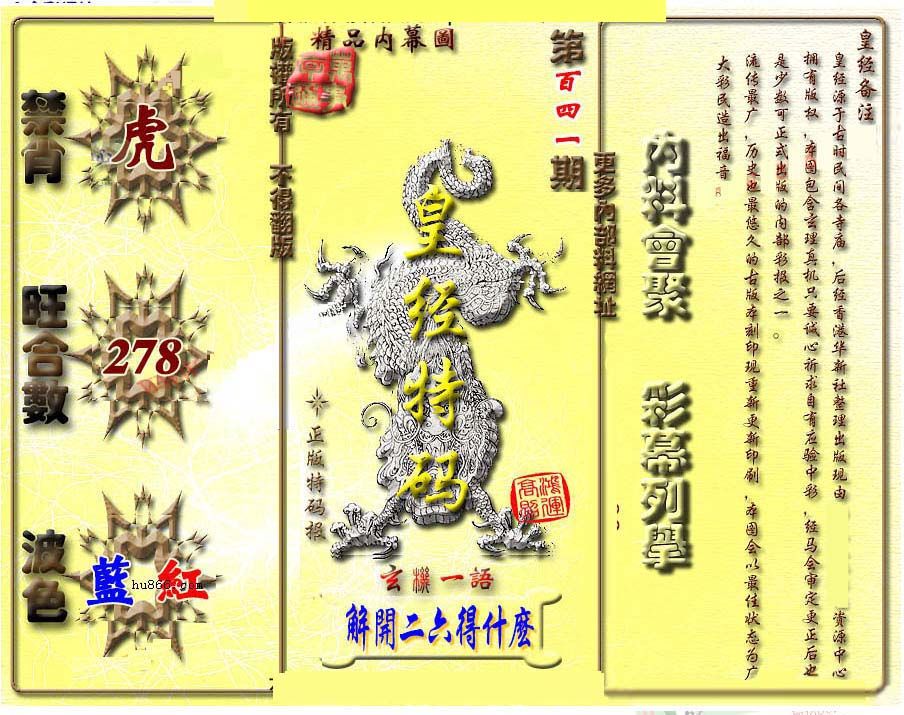 精品内幕圖
版權所有 不得翻版
第百四一期
更多内部料網址
禁肖
虎
旺合數
278
波色
藍 紅
hu866.com
皇经特码
正版特码报
鴻運高照
玄機一語
解開二六得什麽
内料會聚
彩幕列舉
皇经备注
皇经源于古时民间各寺庙，后经香港华新社整理出版现由 资源中心
拥有版权，本图包含玄理真机只要诚心祈求自有应验中彩，经马会审定更正后也
是少数可正式出版的内部彩报之一。
流传最广，历史也最悠久的古版本刻印现重新更新印刷，本图会以最佳状态为广
大彩民造出福音